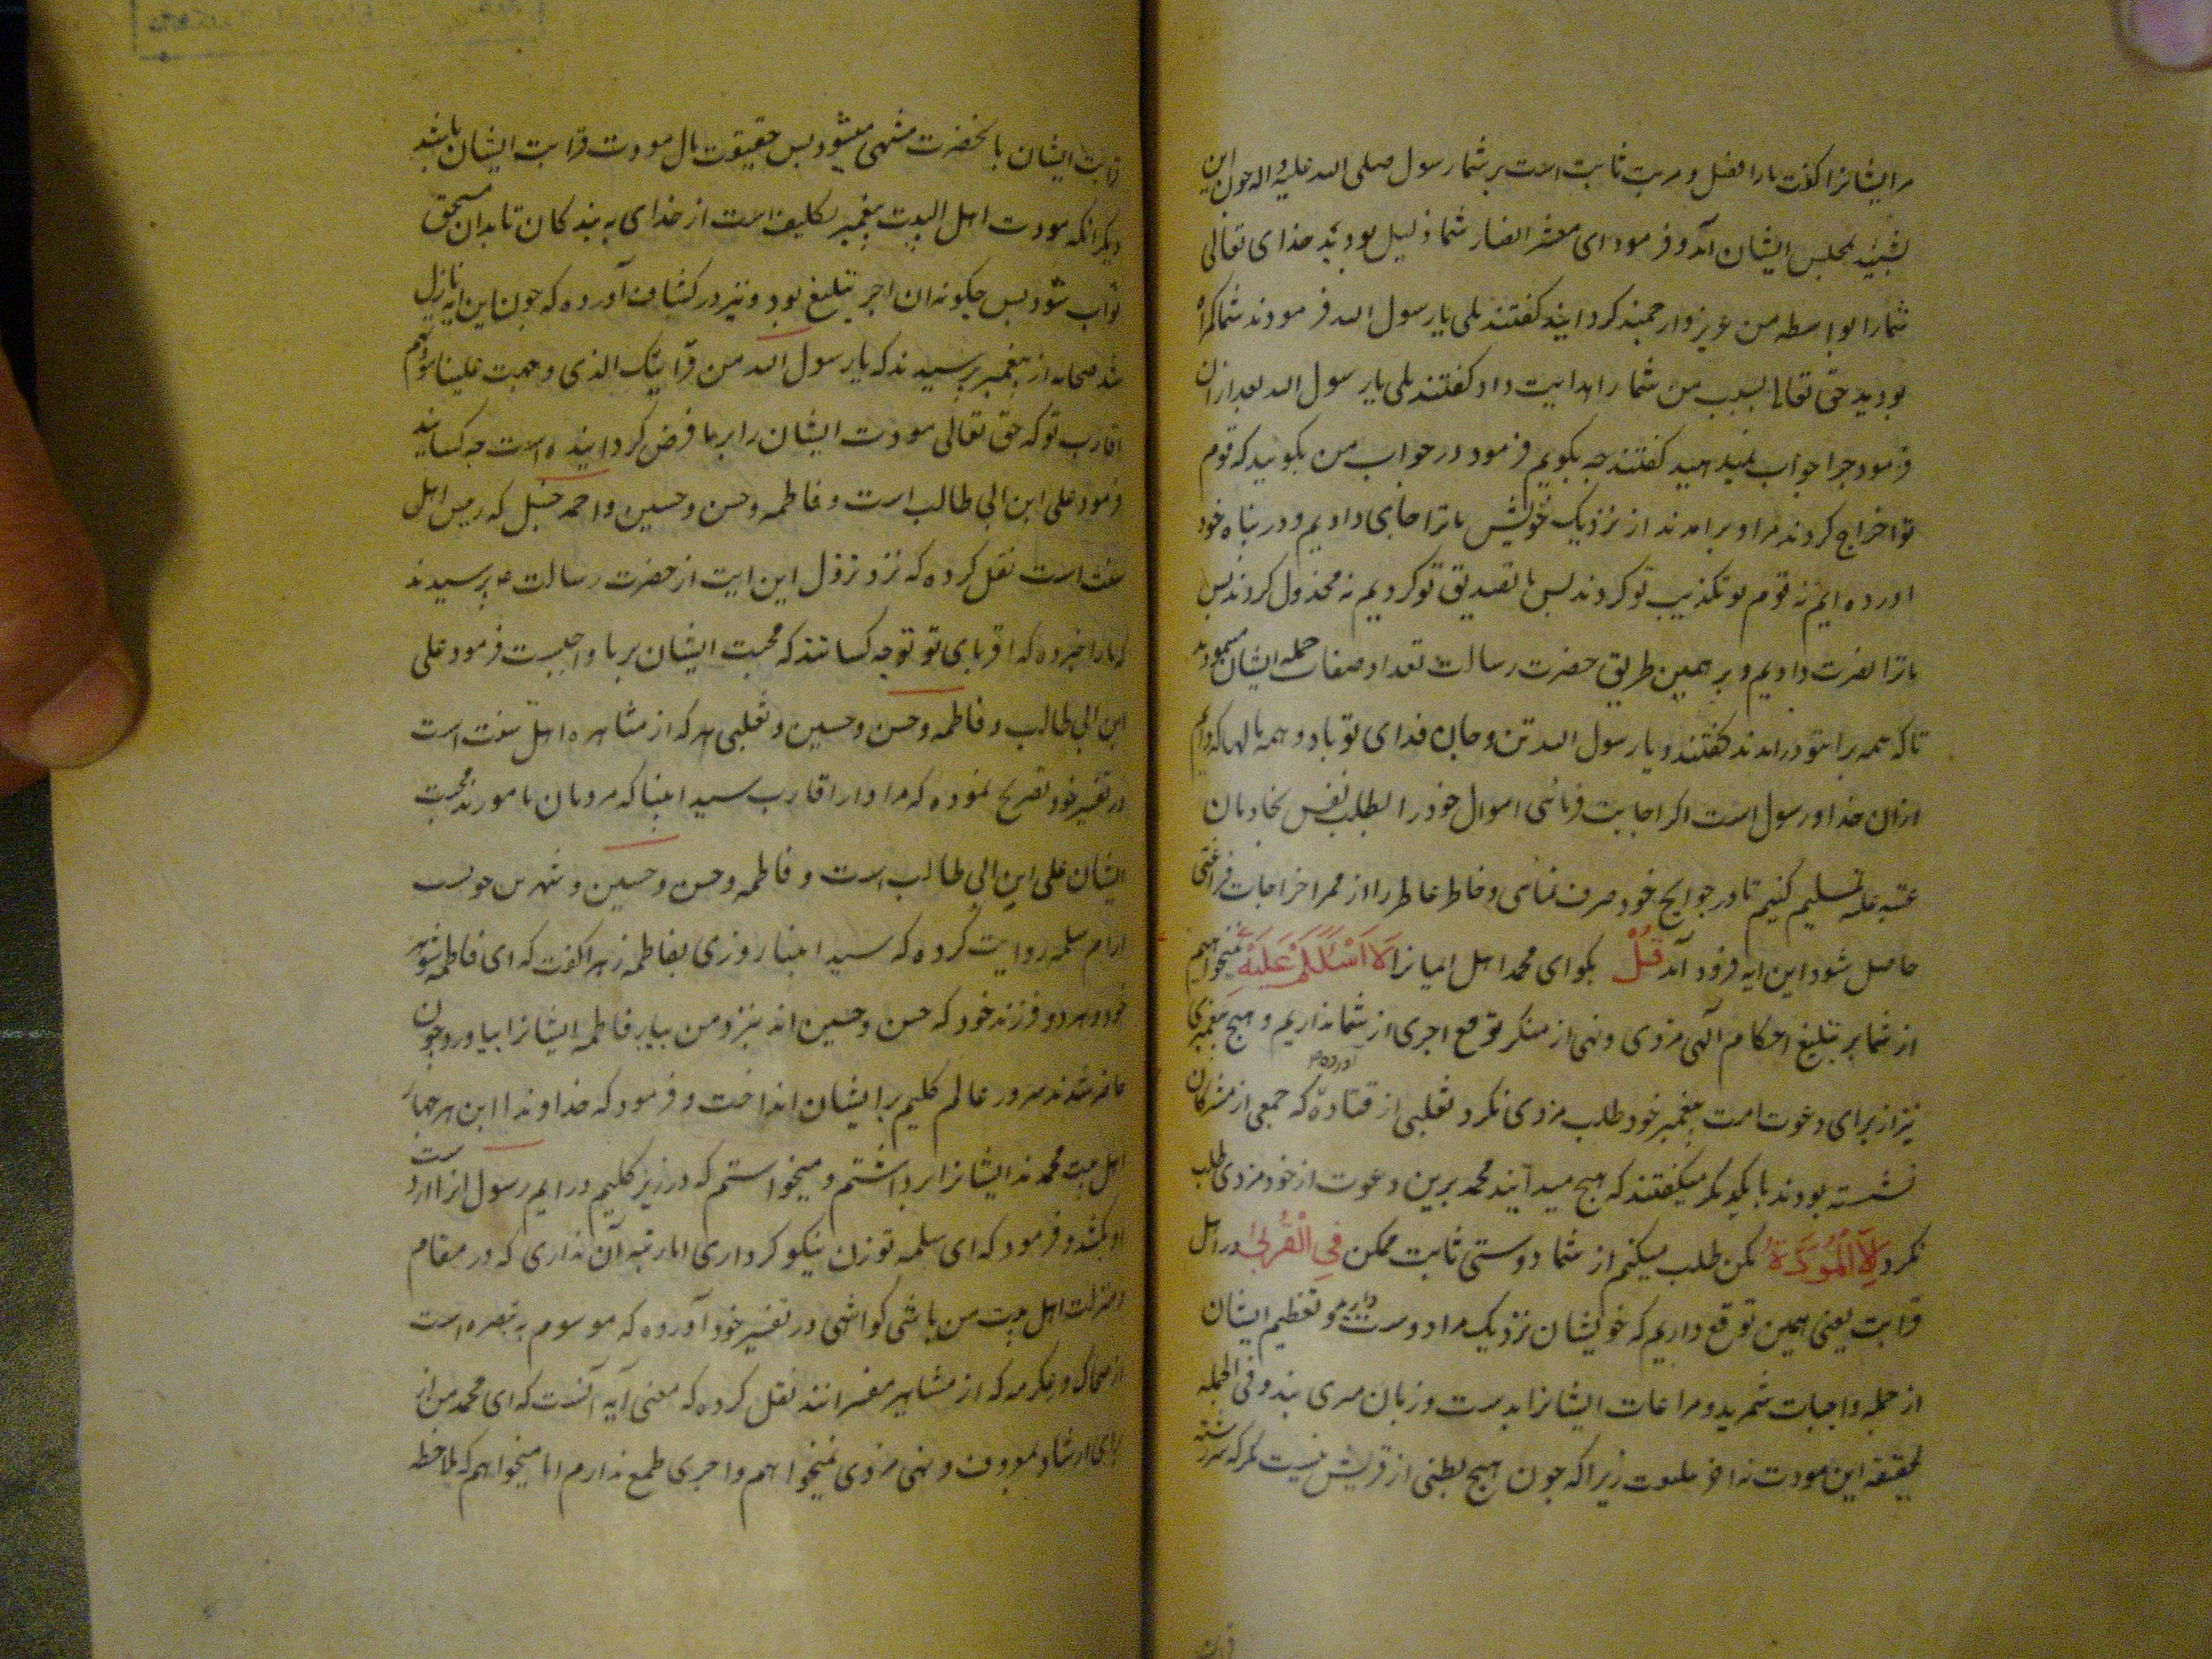 مر ایشانرا گفت ما را فضل و مرتبت ثابت است بر شما رسول صلی الله علیه و اله چون این
بشنید بمجلس ایشان آمد و فرمود ای معشر انصار شما ذلیل بودید خدای تعالی
شما را بواسطه من عزیز و ارجمند کردانید گفتند بلی یا رسول الله فرمودند شما گمراه
بودید حق تعالی بسبب من شما را هدایت داد گفتند بلی یا رسول الله بعد ازان
فرمود چرا جواب نمیدهید گفتند چه بگویم فرمود در جواب من بگوئید که قوم
تو اخراج کردند مر او برامدند از نزدیک خویش ما ترا جای دادیم و در پناه خود
اورده ایم نه قوم تو تکذیب تو کردند پس ما تصدیق تو کردیم نه مخذول کردند پس
ما ترا نصرت دادیم و بر همین طریق حضرت رسالت تعداد صفات جمله ایشان
تا که همه برانو درامدند گفتند و یا رسول الله تن و جان فدای تو باد و همه مالها که داریم
ازان خدا و رسول است اگر اجابت فرمائی اموال خود را بطلب نفس بخادمان
عتبه علیه تسلیم کنیم تا در حوایج خود صرف نمائی و خاطر عاطر را از ممر اخراجات فراغتی
حاصل شود این ایه فرود آمد قُلْ بگو ای محمد اهل ایمانرا لَا اَسْأَلُكُمْ عَلَيْهِ نمیخواهم
از شما بر تبلیغ احکام الهی مزدی و نهی از منکر توقع اجری از شما نداریم و هیچ پیغمبری
نیز از برای دعوت امت پیغمبر خود طلب مزدی نکرد و ثعلبی از قتاده آورده که جمعی از مشرکان
نشسته بودند با یکدیگر میگفتند که هیچ میدانید محمد برین دعوت از خود مزدی طلب
نکرد اِلَّا الْمَوَدَّةَ لکن طلب میکنم از شما دوستی ثابت ممکن فِي الْقُرْبٰى در اهل
قرابت یعنی همین توقع داریم که خویشان نزدیک مرا دوست دارید و تعظیم ایشان
از جمله واجبات شمرید و مراعات ایشانرا بدست و زبان مرعی بند و فی الجمله
بحقیقه این مودت نه اجر است زیرا که چون هیچ بطنی از قریش نیست مگر که سررشته
قرابت ایشان بانحضرت منتهی میشود پس حقیقت مال مودت قرابت ایشان باشد
دیگر انکه مودت اهل البیت پیغمبر تکلیف است از خدای به بندکان تا بدان مستحق
ثواب شود پس چکونه ان اجر تبلیغ بود و نیز در کشاف آورده که چون این ایه نازل
شد صحابه از پیغمبر پرسیدند که یا رسول الله من قرابتک الذی وجبت علینا مودتهم
اقارب تو که حق تعالی مودت ایشان را بر ما فرض کردانیده است چه کسانند
فرمود علی ابن ابی طالب است و فاطمه و حسن و حسین و احمد حنبل که رییس اهل
سنت است نقل کرده که نزد نزول این ایت از حضرت رسالت ء پرسیدند
که ما را خبر ده که اقربای تو توجه کسانند که محبت ایشان بر ما واجبست فرمود علی
ابن ابی طالب و فاطمه و حسن و حسین و ثعلبی هر که از مشاهره اهل سنت است
در تفسیر خود تصریح نموده که مراد از اقارب سید انبیا که مردمان مامورند بمحبت
ایشان علی ابن ابی طالب است و فاطمه و حسن و حسین و
از ام سلمه روایت کرده که سید انبیا روزی بفاطمه زهرا گفت که ای فاطمه شوهر
خود و هر دو فرزند خود که حسن و حسین اند بنزد من بیار فاطمه ایشانرا بیاورد چون
حاضر شدند سرور عالم کلیم بر ایشان انداخت و فرمود که خداوندا این هر چهار
اهل بیت محمدند ایشانرا برداشتم و میخواستم که در زیر کلیم درایم رسول انرا از دست
او بکشد و فرمود که ای سلمه تو زن نیکو کرداری اما رتبه آن نداری که در مقام
و منزلت اهل بیت من باشی کواشی در تفسیر خود آورده که موسوم به تبصره است
از ضحاک و عکرمه که از مشاهیر مفسرانند نقل کرده که معنی آیه آنست که ای محمد من از
برای ارشاد بمعروف و نهی مزدی نمیخواهم و اجری طمع ندارم اما میخواهم که ملاحظه